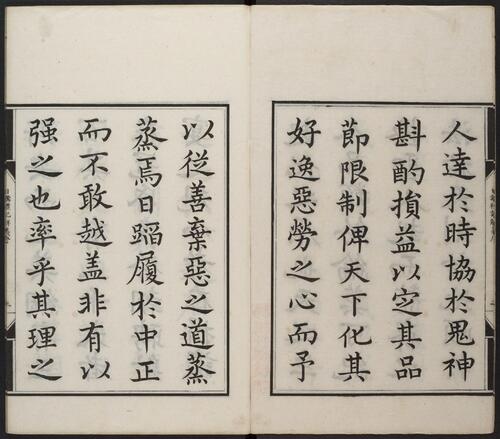 人達於時協於鬼神
斟酌損益以定其品
節限制俾天下化其
好逸惡勞之心而予
以從善棄惡之道蒸
蒸焉日蹈履於中正
而不敢越盖非有以
强之也率乎其理之